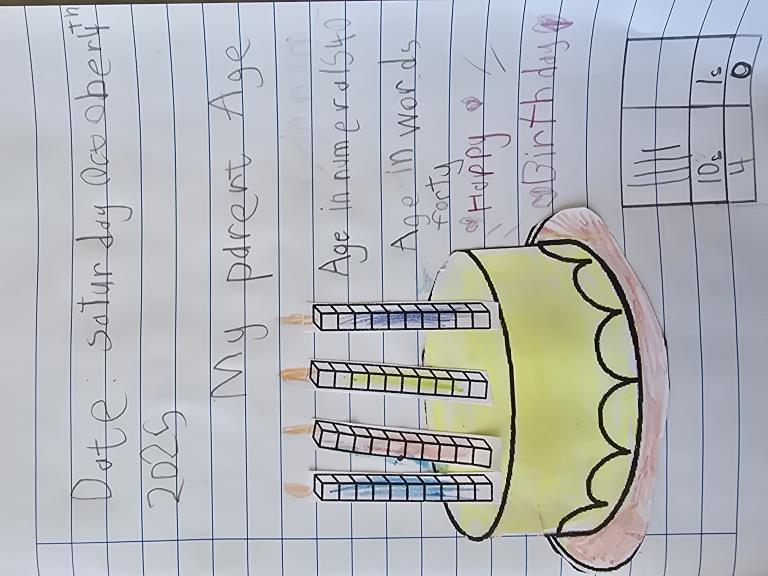 Date: Saturday October 4th
2025
My parent Age
Age in numerals 40
Age in words
forty
Happy
Birthday
10s 1s
4 0